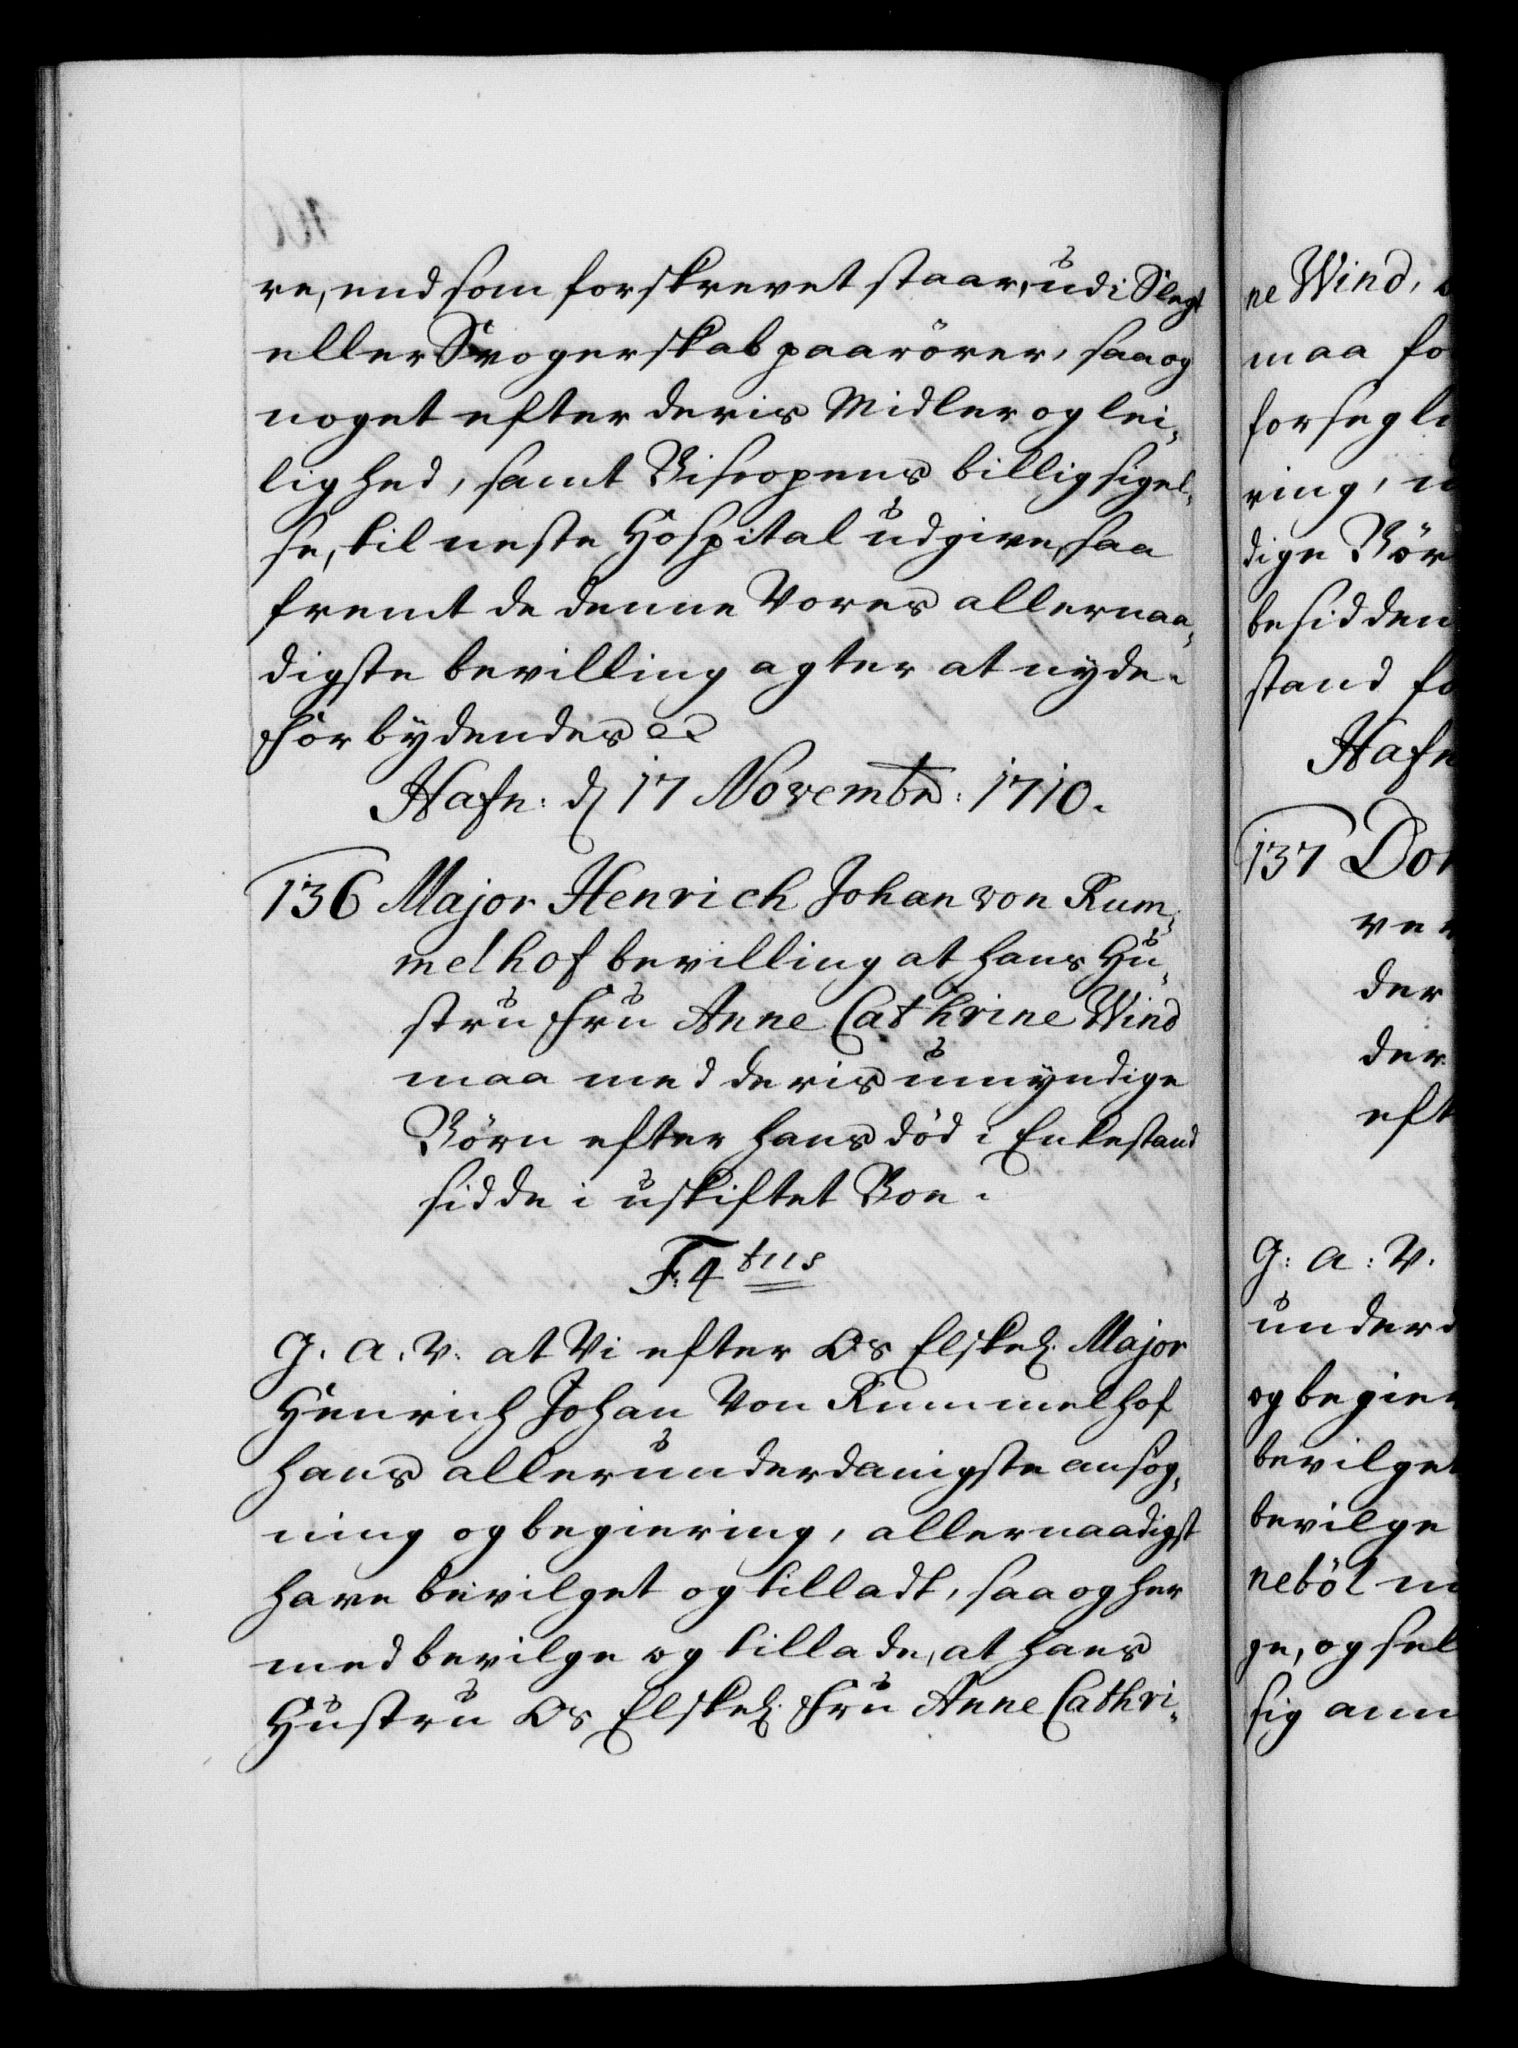 re, end som forskrevet staar, udi Slegt
eller Svogerskab paarörer, saa og
noget efter deris Midler og lei,
lighed, samt Biscopens billig sigel,
se, til neste Hospital udgive, saa
fremt de denne Vores allernaa,
digste bevilling agter at nyde.
Forbydendes
Hafn: d 17 Novembr: 1710.
136 Major Henrich Johan von Rum,
melhof bevilling at hans Hu,
stru Fru Anne Cathrine Wind
maa med deris umyndige
Börn efter hans död i Enkestand
sidde i uskiftet Boe.
F: 4tus
G. A. V: at Vi efter Os Elskel. Major
Henrich Johan Von Rummelhof
hans allerunderdanigste ansög,
ning og begiering, allernaadigst
have bevilget og tilladt, saa og her
med bevilge og tillade, at hans
Hustru Os Elskel. Fru Anne Cathri,
ne Wind,
maa
forsegli
ring,
dige Bör
besidden
stand
Hafn
137
der
der
eft
G: A: V.
underd
og begier
bevilget
bevilge
neböl
ge, og sel
sig ann